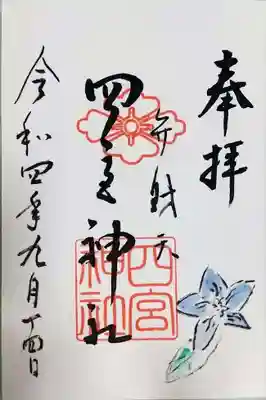 奉拝
弁財天
四宮神社
四宮神社
令和四年九月十四日